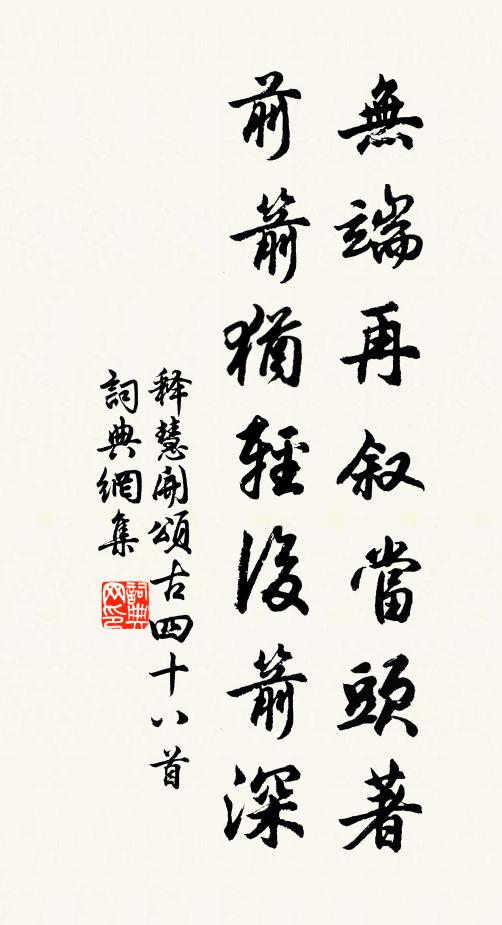 無端再叙當頭著
前箭猶輕後箭深
釋慧開頌古四十八首
詞典網集
詞典网印